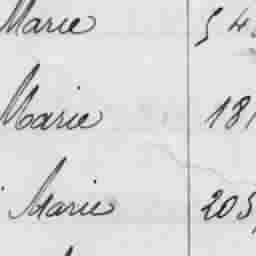 Marie 54
Marie 181
Marie 205